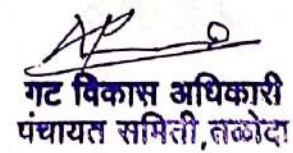 गट विकास अधिकारी
पंचायत समिती, तळोदा